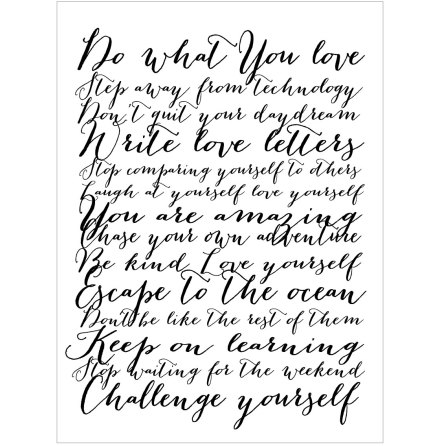 Do what You love
Step away from technology
Don't quit your daydream
Write love letters
Stop comparing yourself to others
Laugh at yourself love yourself
You are amazing
Chase your own adventure
Be kind Love yourself
Escape to the ocean
Don't be like the rest of them
Keep on learning
Stop waiting for the weekend
Challenge yourself